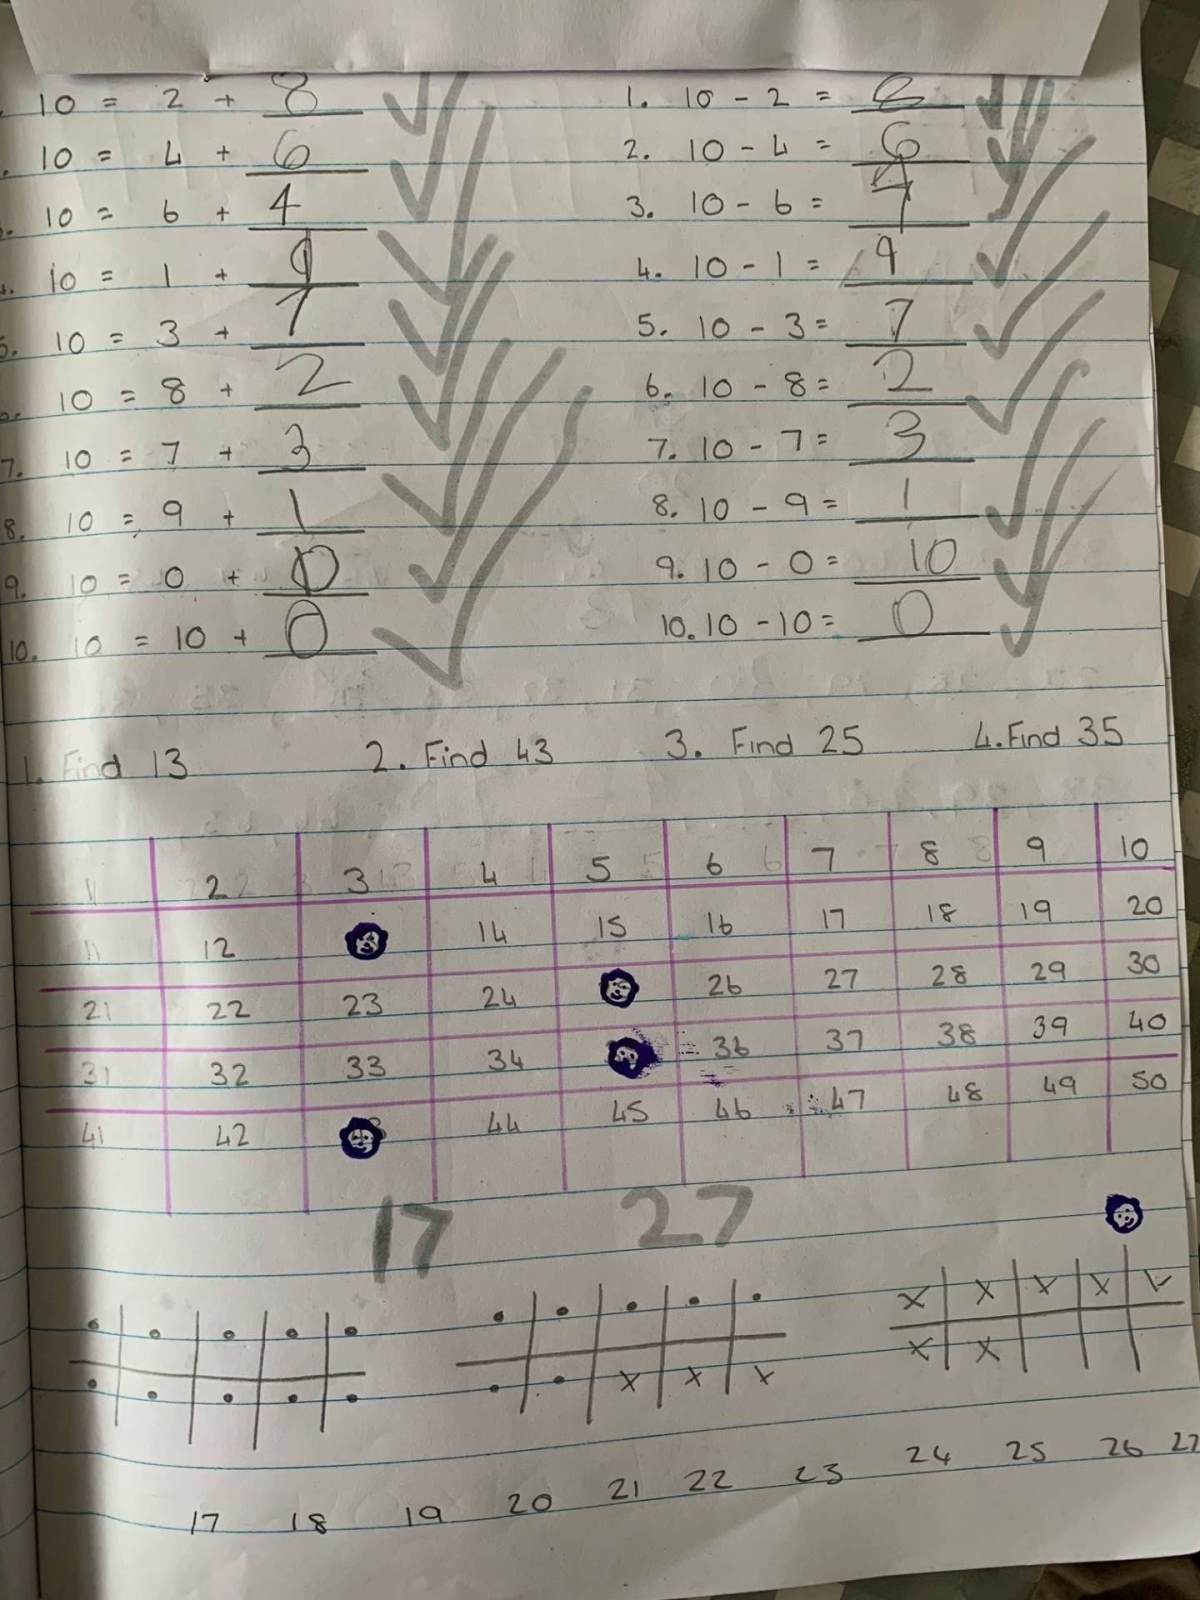 10 = 2 + 8
1. 10 - 2 = 8
10 = 4 + 6
2. 10 - 4 = 6
10 = 6 + 4
3. 10 - 6 = 4
4. 10 = 1 + 9
4. 10 - 1 = 9
5. 10 = 3 + 7
5. 10 - 3 = 7
10 = 8 + 2
6. 10 - 8 = 2
7. 10 = 7 + 3
7. 10 - 7 = 3
8. 10 = 9 + 1
8. 10 - 9 = 1
9. 10 = 0 + 10
9. 10 - 0 = 10
10. 10 = 10 + 0
10. 10 - 10 = 0
1. Find 13 2. Find 43 3. Find 25 4. Find 35
1 2 3 4 5 6 7 8 9 10
11 12 14 15 16 17 18 19 20
21 22 23 24 26 27 28 29 30
31 32 33 34 36 37 38 39 40
41 42 44 45 46 47 48 49 50
17 27
x x x x x
x x x x x
17 18 19 20 21 22 23 24 25 26 27